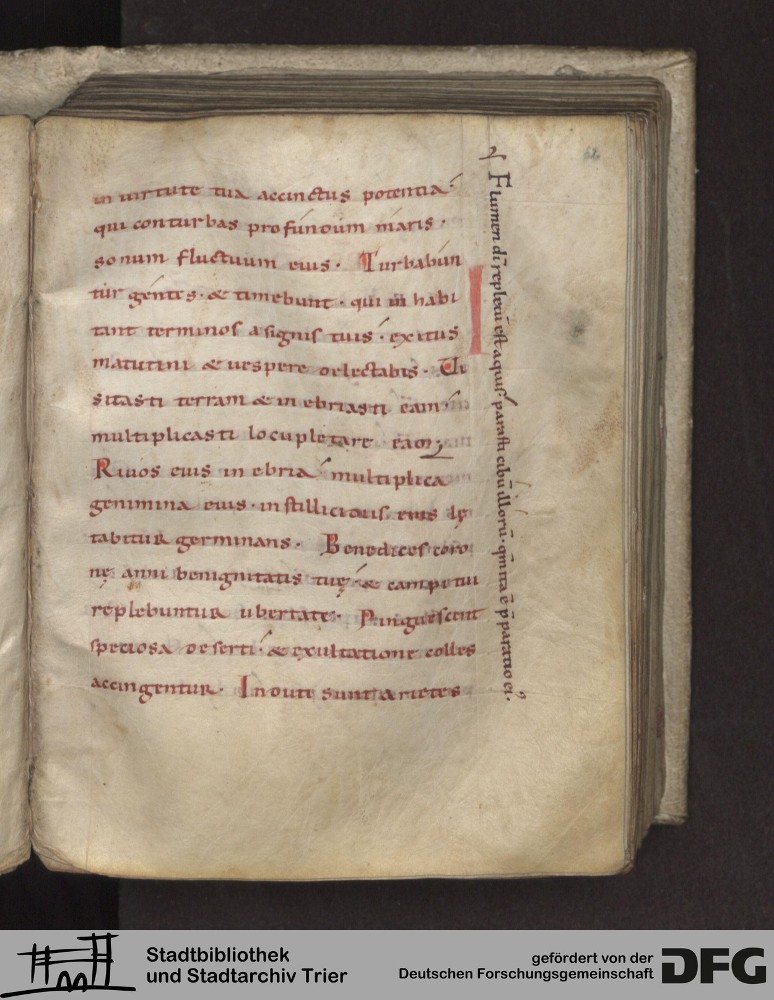 in uirtute tua accinctus potentia.
qui conturbas profundum maris.
sonum fluctuum eius. Turbabun
tur gentes. & timebunt. qui inhabi
tant terminos a signis tuis. exitus
matutini & uespere delectabis. Ui
sitasti terram & inebriasti eam.
multiplicasti locupletare eam;
Riuos eius inebria. multiplica
genimina eius. in stillicidiis eius lę
tabitur germinans. Benedices coro
nę anni benignitatis tuę. & campi tui
replebuntur ubertate. Pinguescent
speciosa deserti. & exultatione colles
accingentur. Induti sunt arietes
Flumen dī repletū est aquis. parasti cibū illorū. qm̄ ita ē p̄paratio ei'.
62
Stadtbibliothek
und Stadtarchiv Trier
gefördert von der
Deutschen Forschungsgemeinschaft
DFG